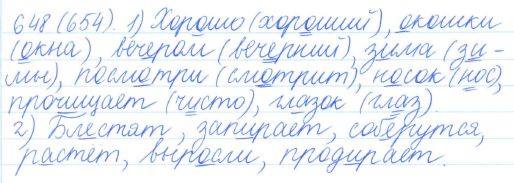 648 (654). 1) Хорошо (хороший), окошки
(окна), вечером (вечерний), зима (зи-
мы), посмотри (смотрит), носок (нос),
прочищает (чисто), глазок (глаз).
2) Блестят, запирает, соберутся,
растет, выросли, продирает.